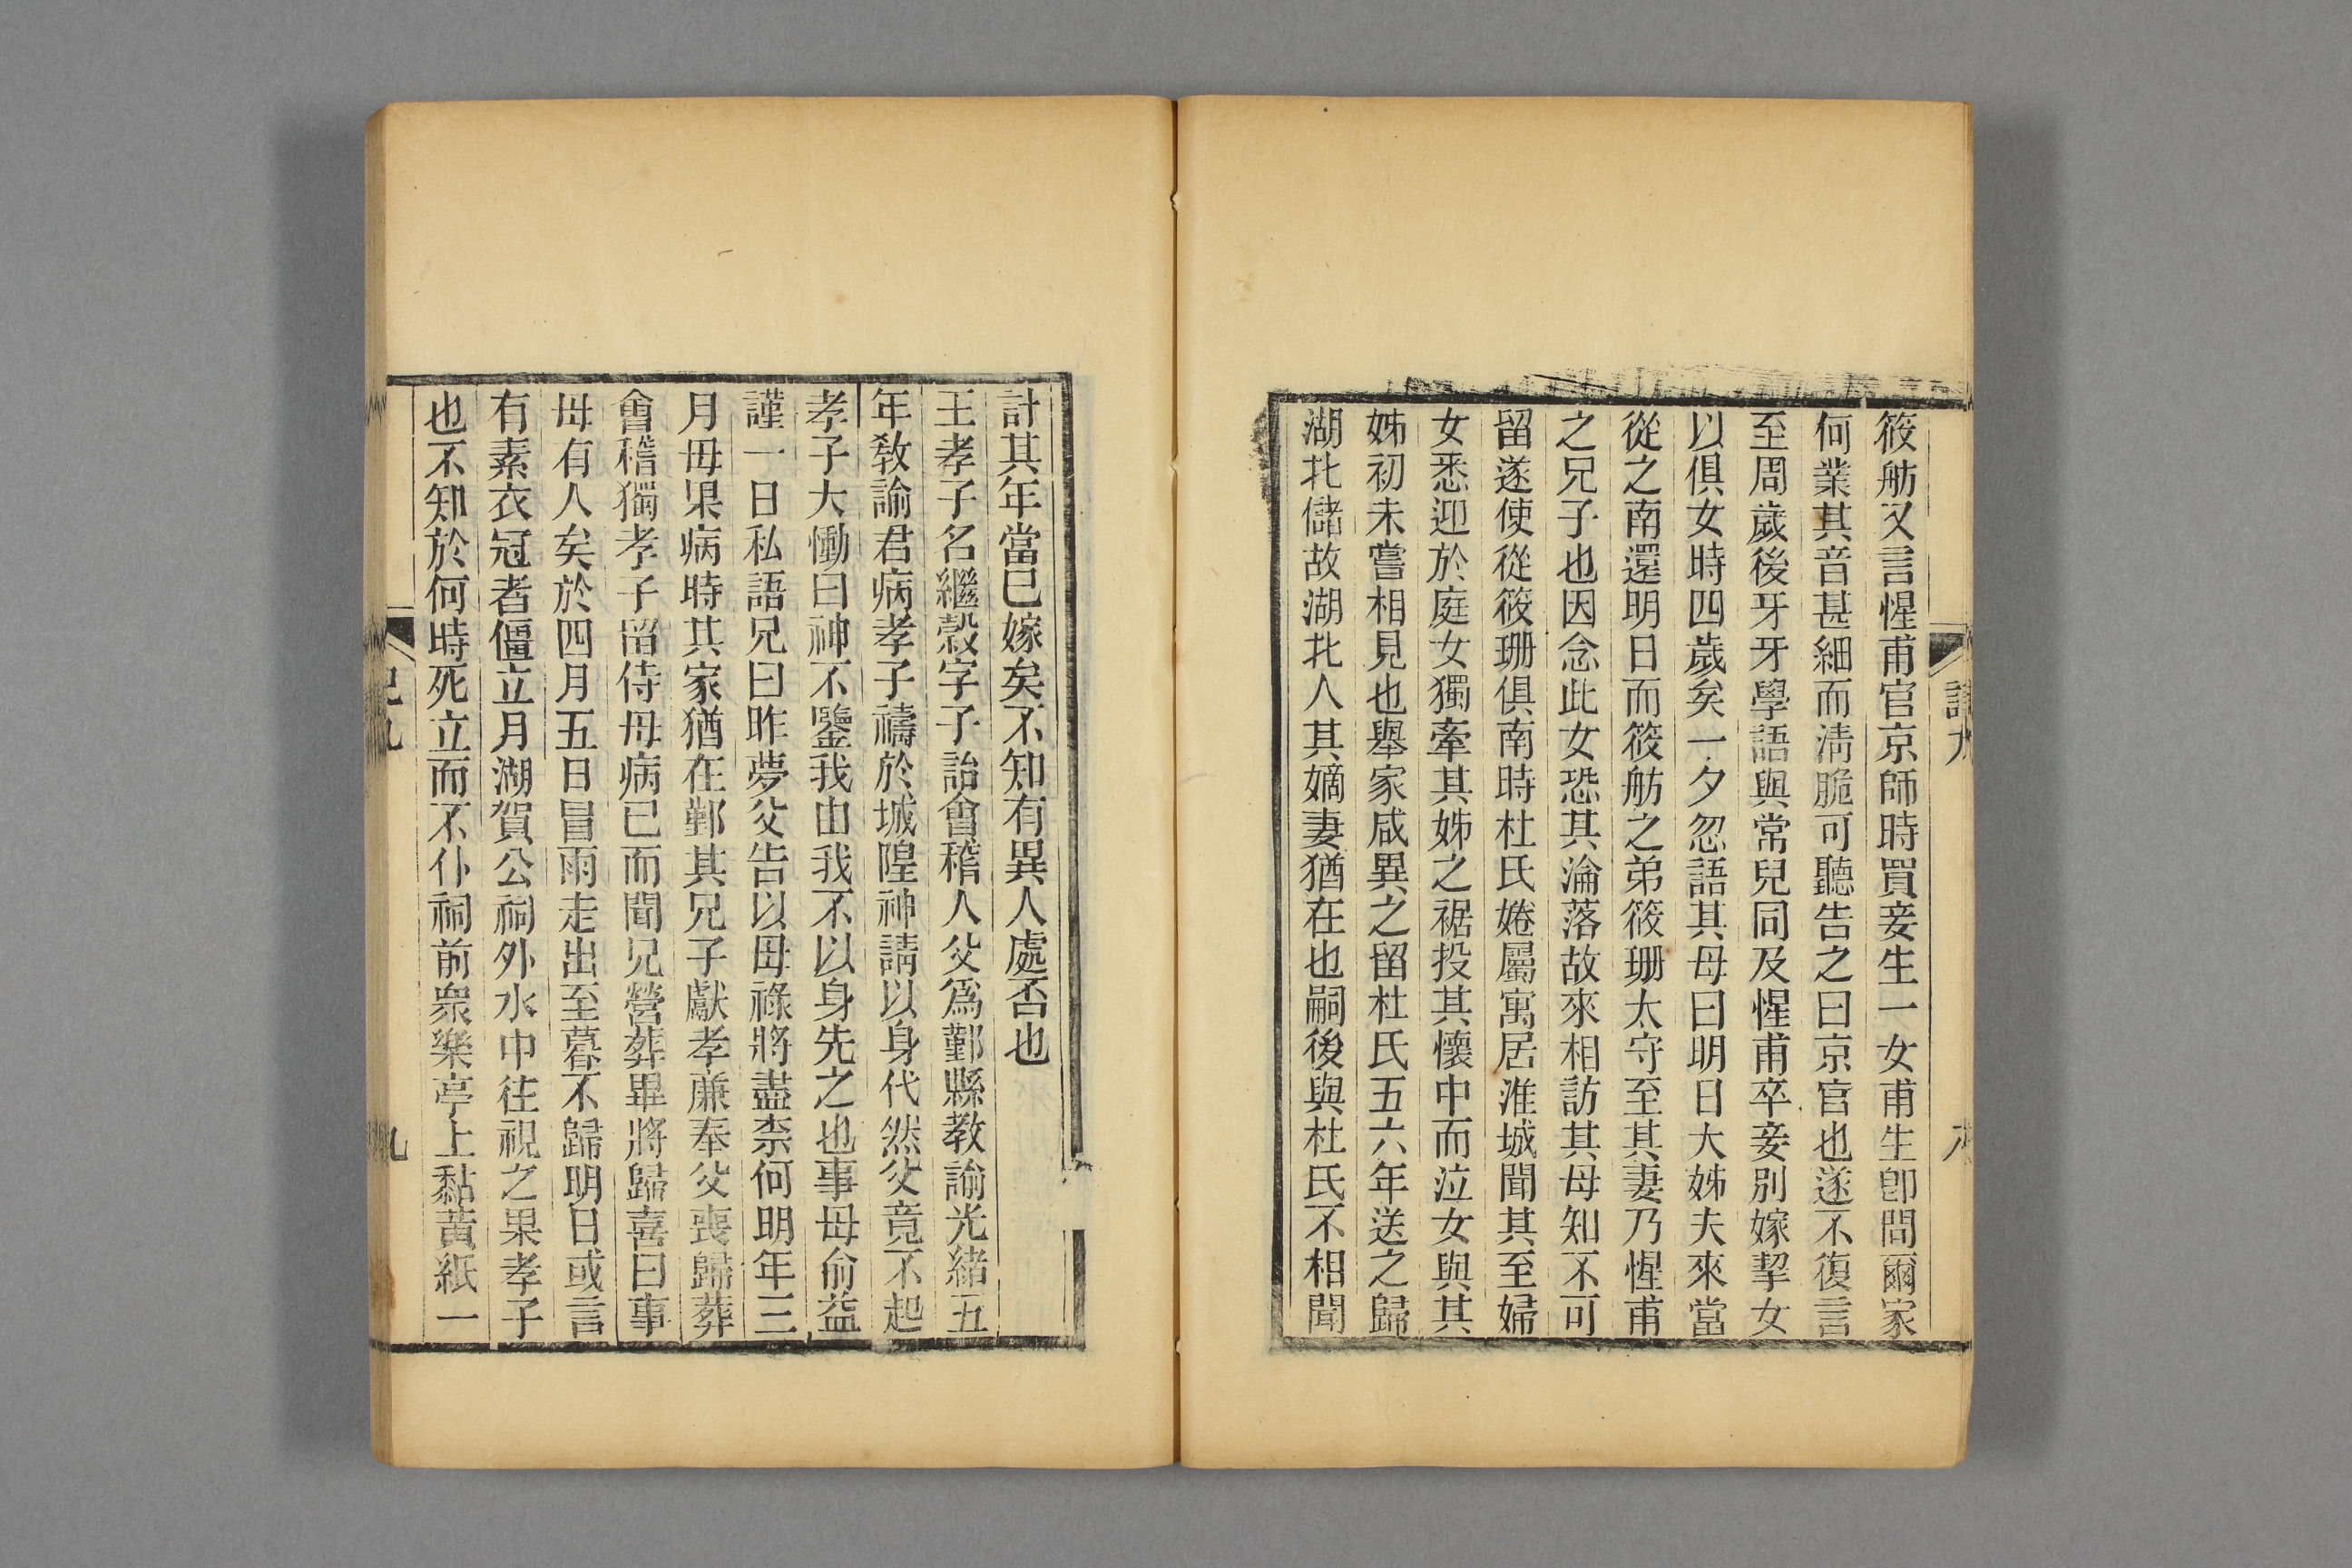 筱舫又言惺甫官京師時買妾生一女甫生卽問爾家
何業其音甚細而淸脆可聽告之曰京官也遂不復言
至周歲後牙牙學語與常兒同及惺甫卒妾別嫁挈女
以俱女時四歲矣一夕忽語其母曰明日大姊夫來當
從之南還明日而筱舫之弟筱珊太守至其妻乃惺甫
之兄子也因念此女恐其淪落故來相訪其母知不可
留遂使從筱珊俱南時杜氏婘屬寓居淮城聞其至婦
女悉迎於庭女獨牽其姊之裾投其懷中而泣女與其
姊初未嘗相見也舉家咸異之留杜氏五六年送之歸
湖北儲故湖北人其嫡妻猶在也嗣後與杜氏不相聞
計其年當已嫁矣不知有異人處否也
王孝子名繼穀字子詒會稽人父爲鄞縣教諭光緒五
年敎諭君病孝子禱於城隍神請以身代然父竟不起
孝子大慟曰神不鑒我由我不以身先之也事母俞益
謹一日私語兄曰昨夢父告以母祿將盡柰何明年三
月母果病時其家猶在鄞其兄子獻孝廉奉父喪歸葬
會稽獨孝子留侍母病已而聞兄營葬畢將歸喜曰事
母有人矣於四月五日冒雨走出至暮不歸明日或言
有素衣冠者僵立月湖賀公祠外水中往視之果孝子
也不知於何時死立而不仆祠前衆樂亭上黏黃紙一
記九
九